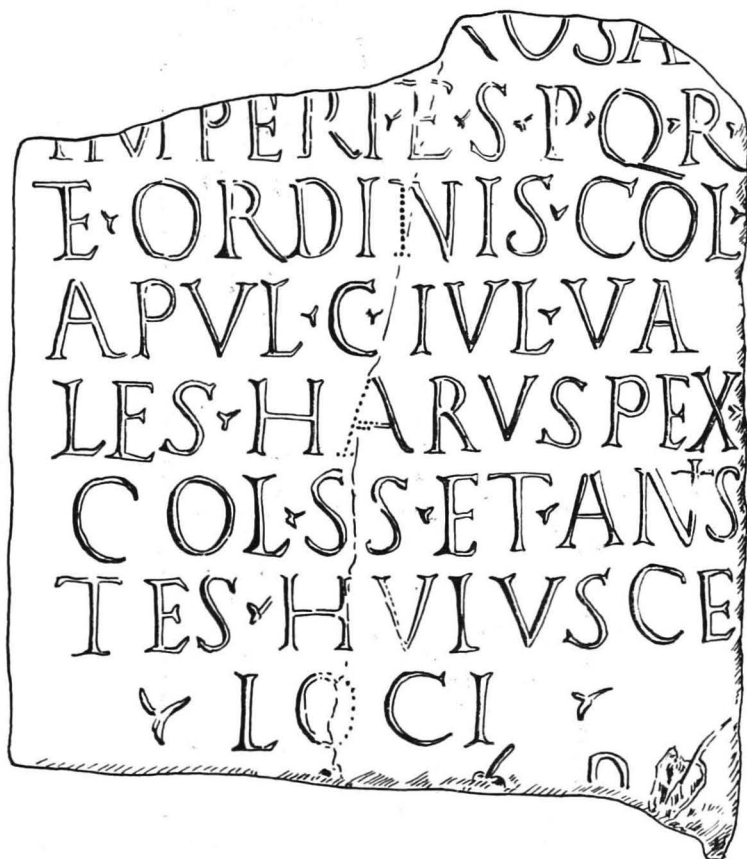 ROSA
IMPERI·E·S·P·Q·R·
E·ORDINIS·COL·
APVL·C·IVL·VA
LES·HARVSPEX·
COL·S S·ET·ANTS
TES·HVIVSCE
·LOCI·